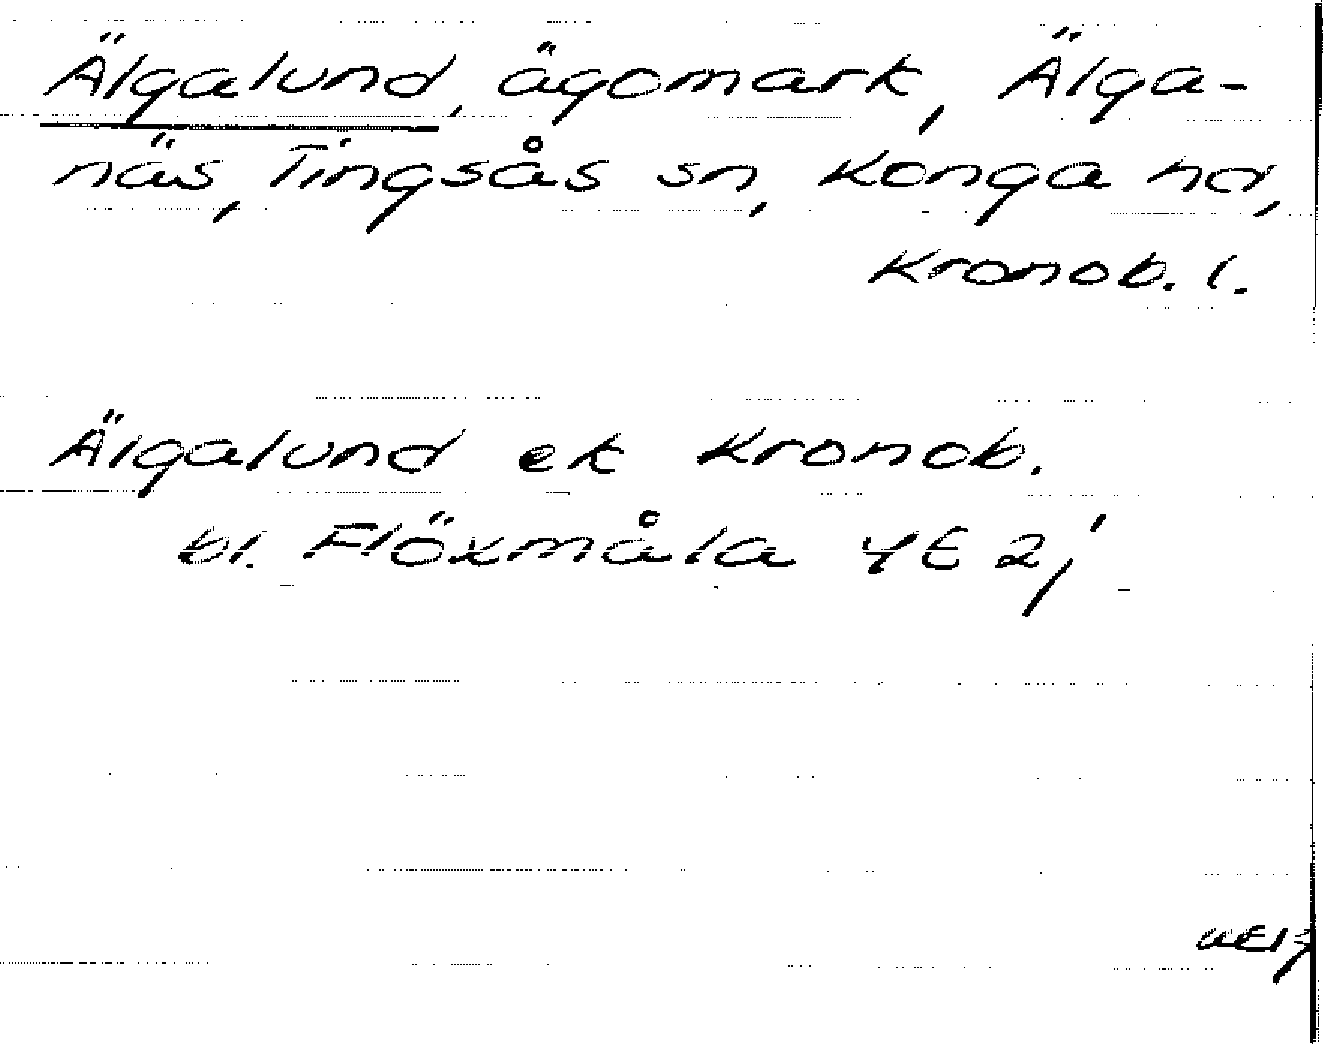 Älgalund, ägomark, Älga-
näs, Tingsås sn, Konga hd,
Kronob. l.
Älgalund ek Kronob.
bl. Flöxmåla 4E 2j